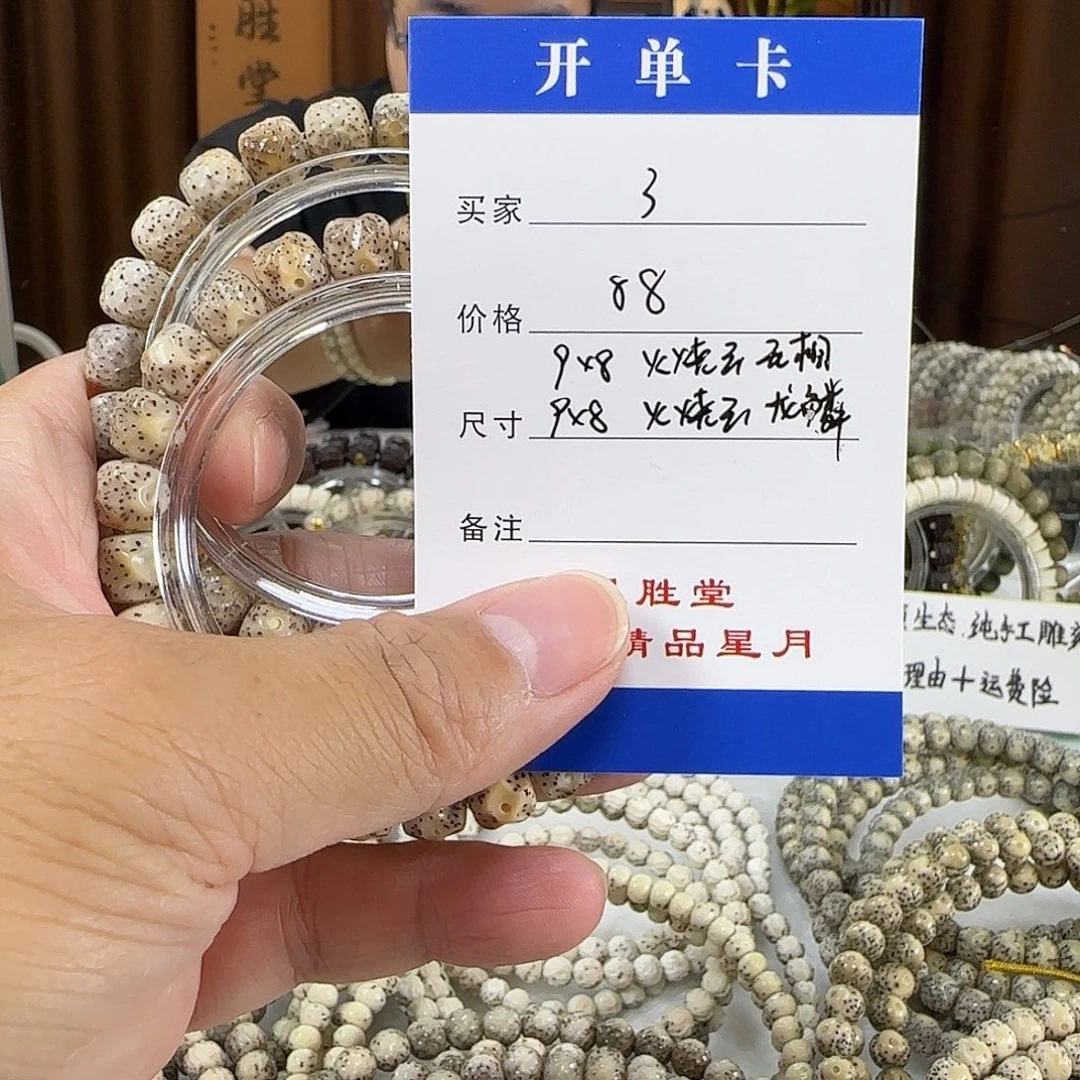 胜
堂
开单卡
买家 3
价格 88
9x8 火烧云 五相
尺寸 9x8 火烧云 龙鳞
备注
胜堂
精品星月
生态.纯手工雕
理由+运费险